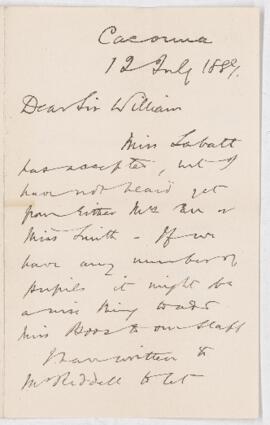 Cacouna
12 July 1889.
Dear Sir William
Miss Labatt
has accepted, but I
have not heard yet
from Either Mrs or
Miss Smith - If we
have any number of
pupils it might be
a wise thing to add
Miss to our Staff
I have written to
Mr Riddell to let